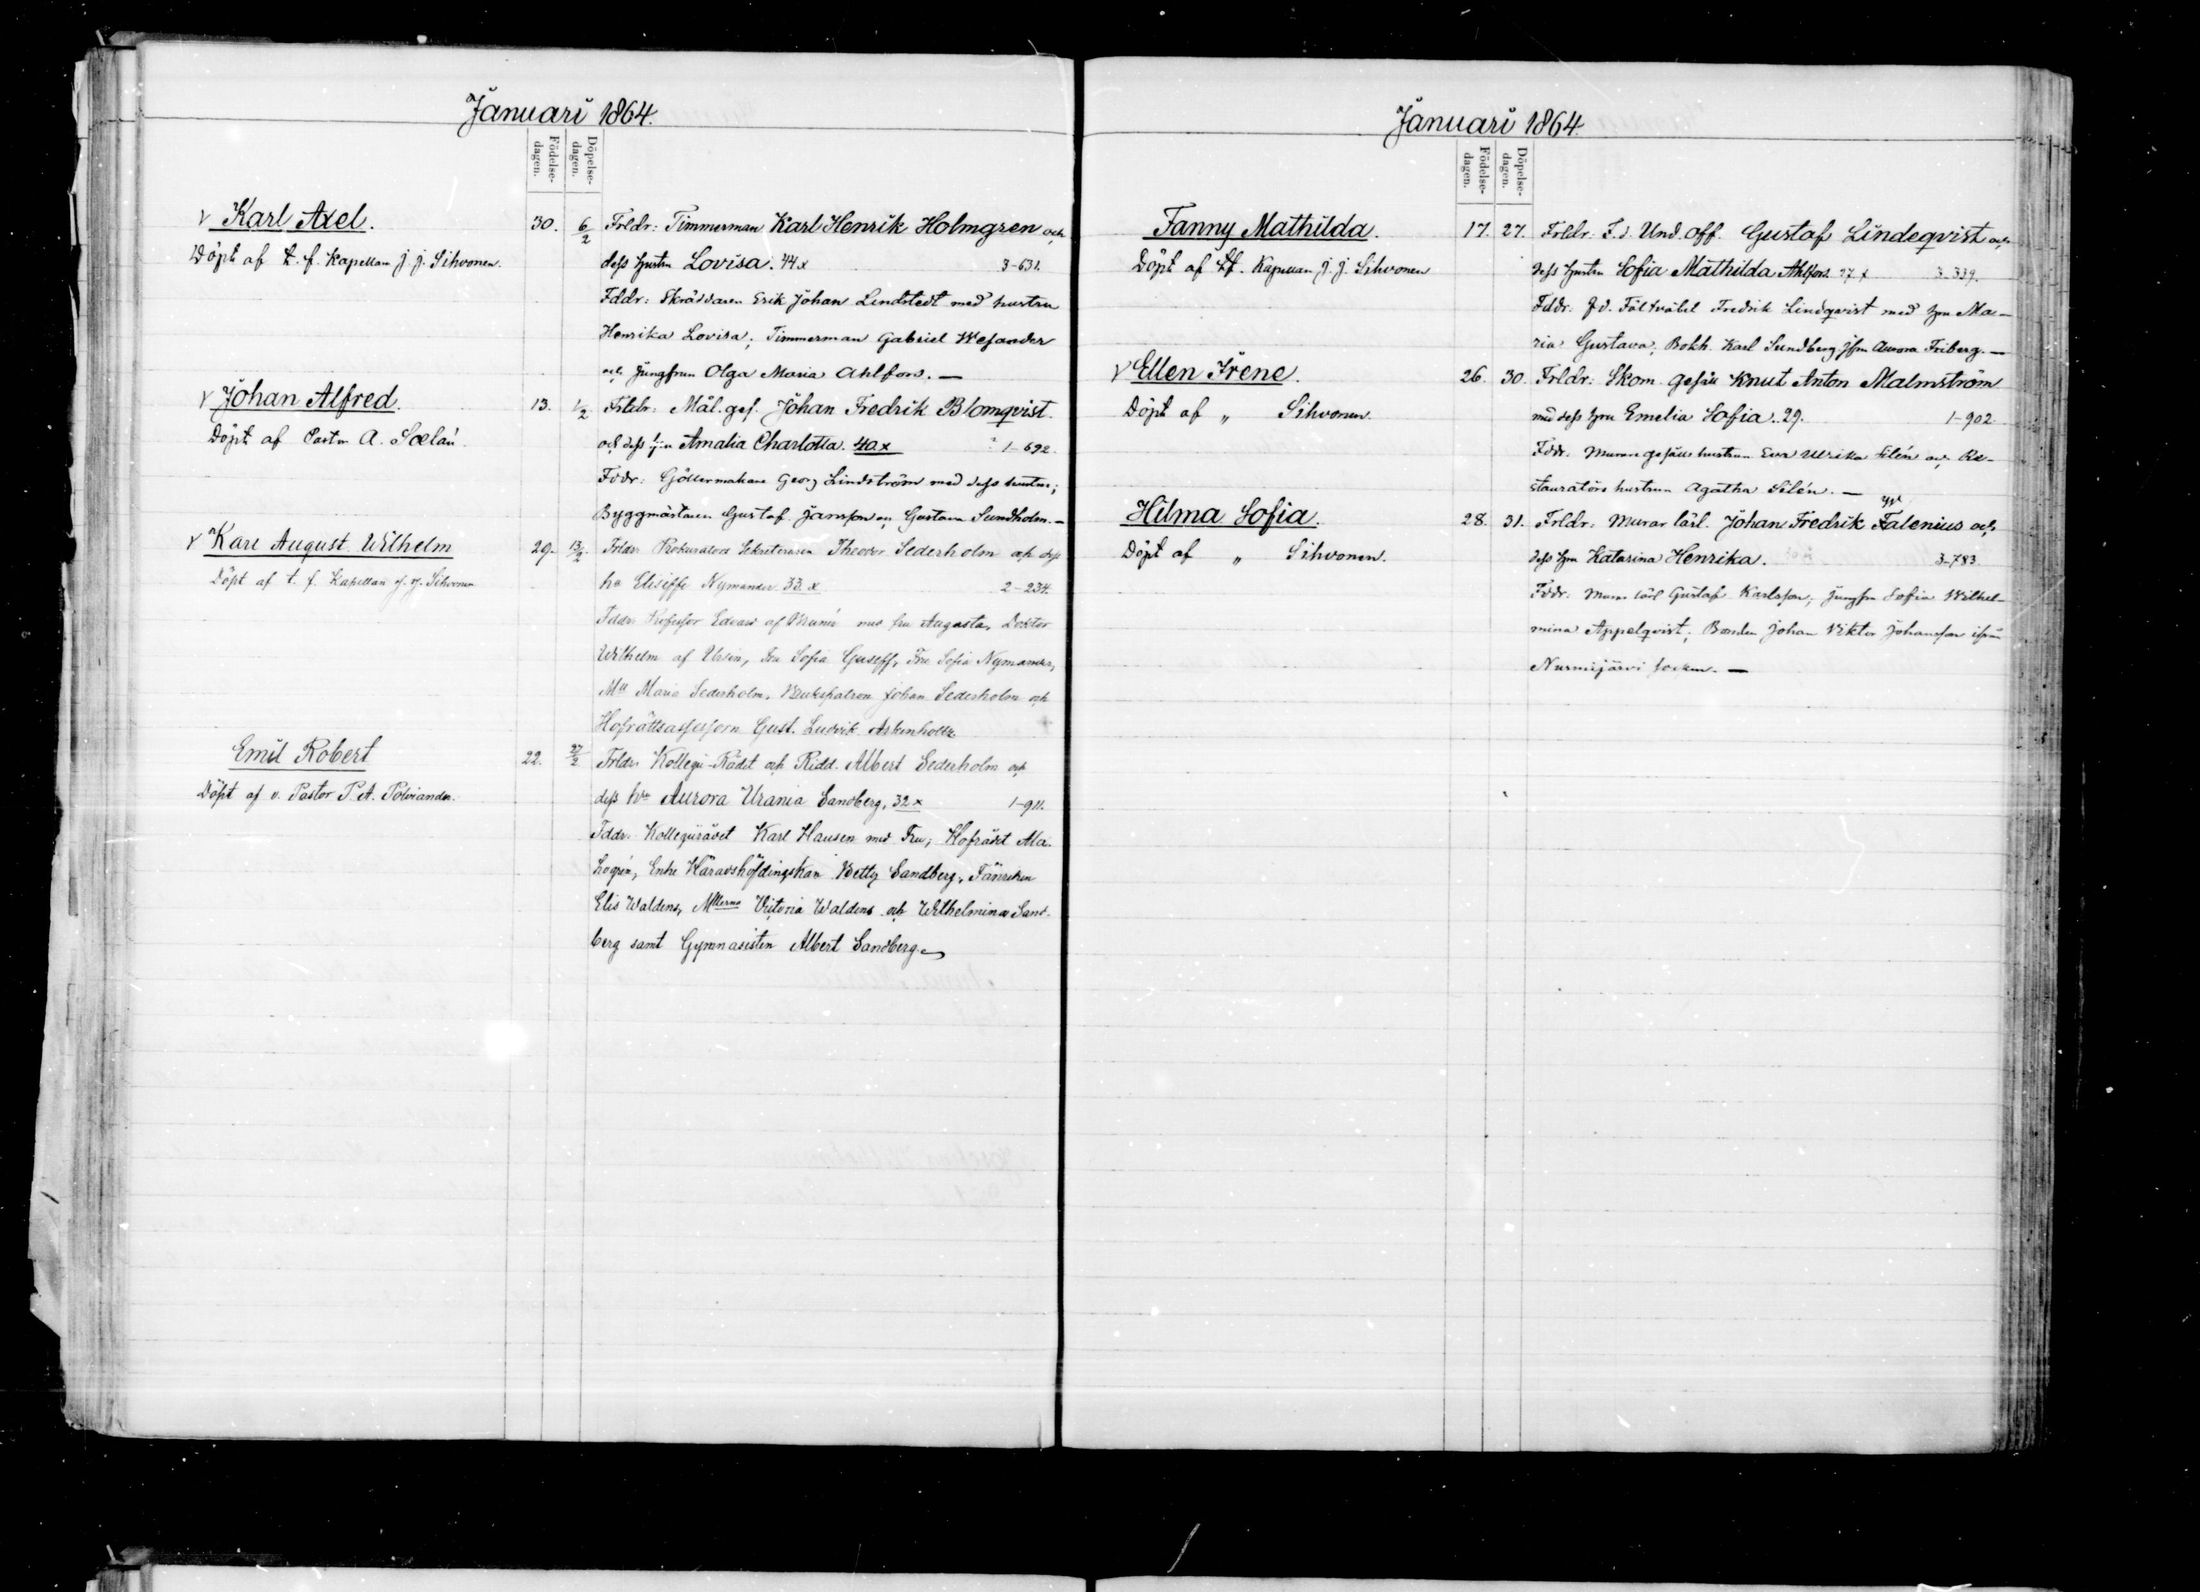 Januari 1864.
Födelse-dagen.
Döpelse-dagen.
Karl Axel.
Döpt af t. f. Kapellan J. J. Sihvonen.
30. 6/2 Frldr: Timmerman Karl Henrik Holmgren och
dess hustru Lovisa. 44 x 3-631.
Fddr: Skräddaren Erik Johan Lindstedt med hustru
Henrika Lovisa; Timmerman Gabriel Wesander
och Jungfrun Olga Maria Ahlfors. —
Johan Alfred.
Döpt af Pastor A.
13. 1/2 Frldr: Mål. ges. Johan Fredrik Blomqvist.
och dess Amalia Charlotta. 40. x 1-692.
Fddr: Georg Lindström med dess hustru;
Byggmästaren Gustaf Jansson och Gustava Sundholm. —
Karl August Wilhelm
Döpt af t. f. Kapellan J. J. Sihvonen
29. 13/2 Frldr: Prokurators Sekreteraren Theodor Sederholm och dess
hu Elisiffe Nymander 33. x 2-234.
Fddr: Professor Edvard af Bruner med fru Augusta, Doktor
Wilhelm af Ursin, Fru Sofia Guseff, Fru Sofia Nymander,
Mll Maria Sederholm, Brukspatron Johan Sederholm och
Hofrättsassessorn Gust. Ludvik Askenholtz
Emil Robert
Döpt af v. Pastor P. A. Polviander.
22. 27/2 Frldr: Kollegii-Rådet och Ridd. Albert Sederholm och
dess hu Aurora Urania Sandberg, 32 x 1-911.
Fddr: Kollegiirådet Karl Hausen med Fru, Hofrådet Ma-
Enke Häradshöfdingskan Betty Sandberg, Fänriken
Elis Waldens, Mllerna Victoria Waldens och Wilhelmina Sand-
berg samt Gymnasisten Albert Sandberg. —
Januari 1864
Födelse-dagen.
Döpelse-dagen.
Fanny Mathilda.
Döpt af t.f. Kapellan J. J. Sihvonen
17. 27. Frldr: F. d. Und. Off. Gustaf Lindeqvist och
dess hustru Sofia Mathilda Ahlfors. 27 x 3-339.
Fddr: F. d. Fältväbel Fredrik Lindqvist med hru Ma-
ria Gustava; Bokh. Karl Sundberg, Jfru Aurora Friberg. —
Ellen Irene.
Döpt af „ Sihvonen.
26. 30. Frldr: Skom. gesäll Knut Anton Malmström
med dess hru Emelia Sofia. 29. 1-902.
Fddr: Murare gesälls hustrun Eva Ulrika Silén och Re-
stauratörs hustrun Agatha Silén. —
Hilma Sofia.
Döpt af „ Sihvonen.
28. 31. Frldr: Murar lärl. Johan Fredrik Falenius och
dess hru Katarina Henrika. 3-783
Fddr: Murar lärl Gustaf Karlsson, Jungfru Sofia Wilhel-
mina Appelqvist; Bonden Johan Viktor Johansson ifrån
Nurmijärvi socken. —